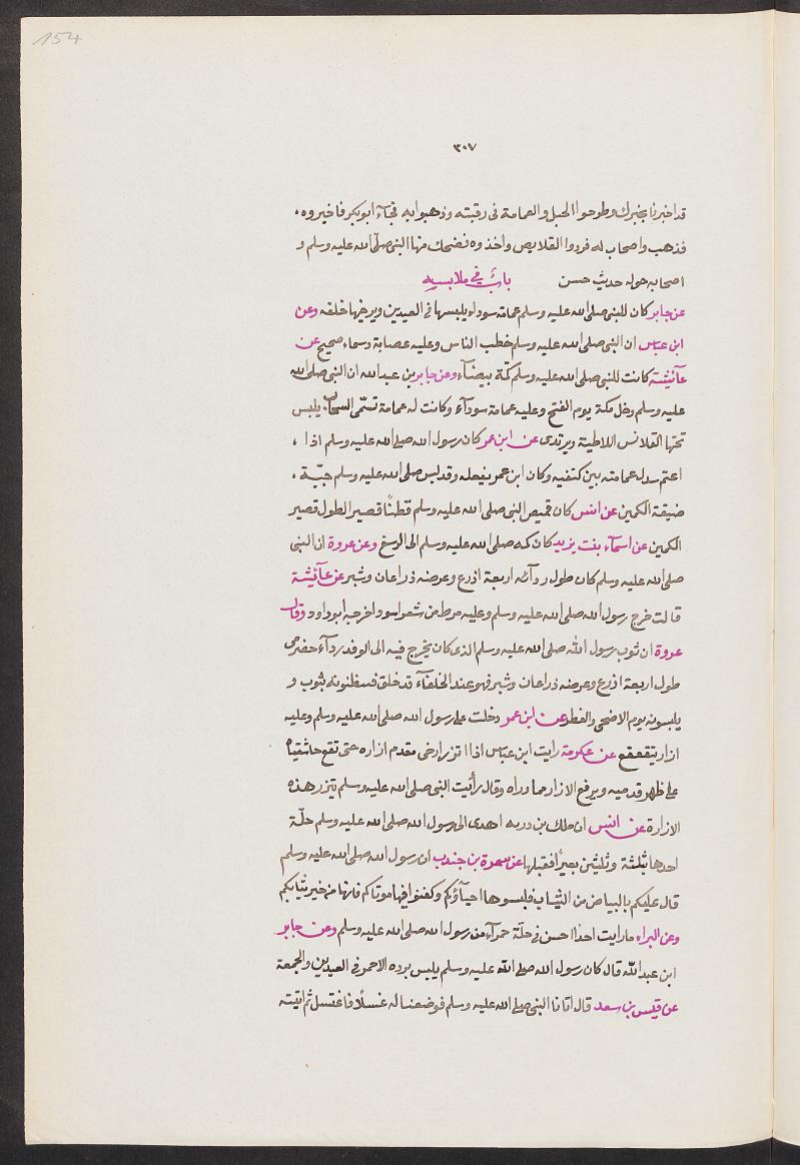 154
٣٠٧
قد اخبرنا بخبرك وطرحوا الحبل والعمامة فى رقبته وذهبوا به فجآء ابوبكر فاخبروه.
فذهب واصحاب له فردوا القلايص واخذوه فضحك منها النبى صلّى الله عليه وسلم و
اصحابه حوله حديث حسن باب فى ملابسه
عن جابر كان للنبى صلى الله عليه وسلم عمامة سودآء يلبسها فى العيدين ويرخيها خلفه وعن
ابن عباس ان النبى صلى الله عليه وسلم خطب الناس وعليه عصابة دسماء صحيح عن
عآئيشة كانت للنبى صلى الله عليه وسلم كمّة بيضآء وعن جابر بن عبدالله ان النبى صلى الله
عليه وسلم دخل مكة يوم الفتح وعليه عمامة سودآء وكانت له عمامة تسمّى السحاب يلبس
تحتها القلانس اللاطية ويرتدى عن ابن عمر كان رسول الله صلى الله عليه وسلم اذا .
اعتم سدل عمامته بين كتفيه وكان ابن عمر يفعله وقد لبس صلى الله عليه وسلم جبّة .
ضيقة الكمين عن انس كان قميص النبى صلى الله عليه وسلم قطنًا قصير الطول قصير
الكمين عن اسمآء بنت يزيد كان كمه صلى الله عليه وسلم الى الرسغ وعن عروة ان النبى
صلى الله عليه وسلم كان طول ردآئه اربعة اذرع وعرضه ذراعان وشبر عن عآئيشة
قالت خرج رسول الله صلى الله عليه وسلم وعليه مرط من شعر اسود اخرجه ابوداود وقال
عروة ان ثوب رسول الله صلى الله عليه وسلم الذى كان يخرج فيه الى الوفد ردآء حضرمى
طول اربعة اذرع وعرضه ذراعان وشبر فهو عند الخلفآء قد خلق فسظنونه بثوب و
يلبسونه يوم الاضحى والفطر عن ابن عمر دخلت على رسول الله صلى الله عليه وسلم وعليه
ازار يتقعقع عن عكرمة رايت ابن عباس اذا اتزر ارخى مقدم ازاره حتى تقع حاشيتاه
على ظهر قدميه ويرفع الازار مما وراه وقال رأيت النبى صلى الله عليه وسلم يتزر هذه
الازارة عن انس ان ملك بن اهدى الى رسول الله صلى الله عليه وسلم حلّة
احدها بثلثة وثلثين بعيرًا فقبلها عن سمرة بن جندب ان رسول الله صلى الله عليه وسلم
قال عليكم بالبياض من الثياب فلبسوها احيآؤكم وكفنوا فيها موتاكم فانها من خير ثيابكم
وعن البراء ما رايت احدا احسن فى حلّة حمرآء من رسول الله صلى الله عليه وسلم وعن جابر
ابن عبدالله قال كان رسول الله صلى الله عليه وسلم يلبس برده الاحمر فى العيدين والجمعة
عن قيس بن سعد قال اتانا النبى صلى الله عليه وسلم فوضعنا له غسلًا فاغتسل ثم اتيته